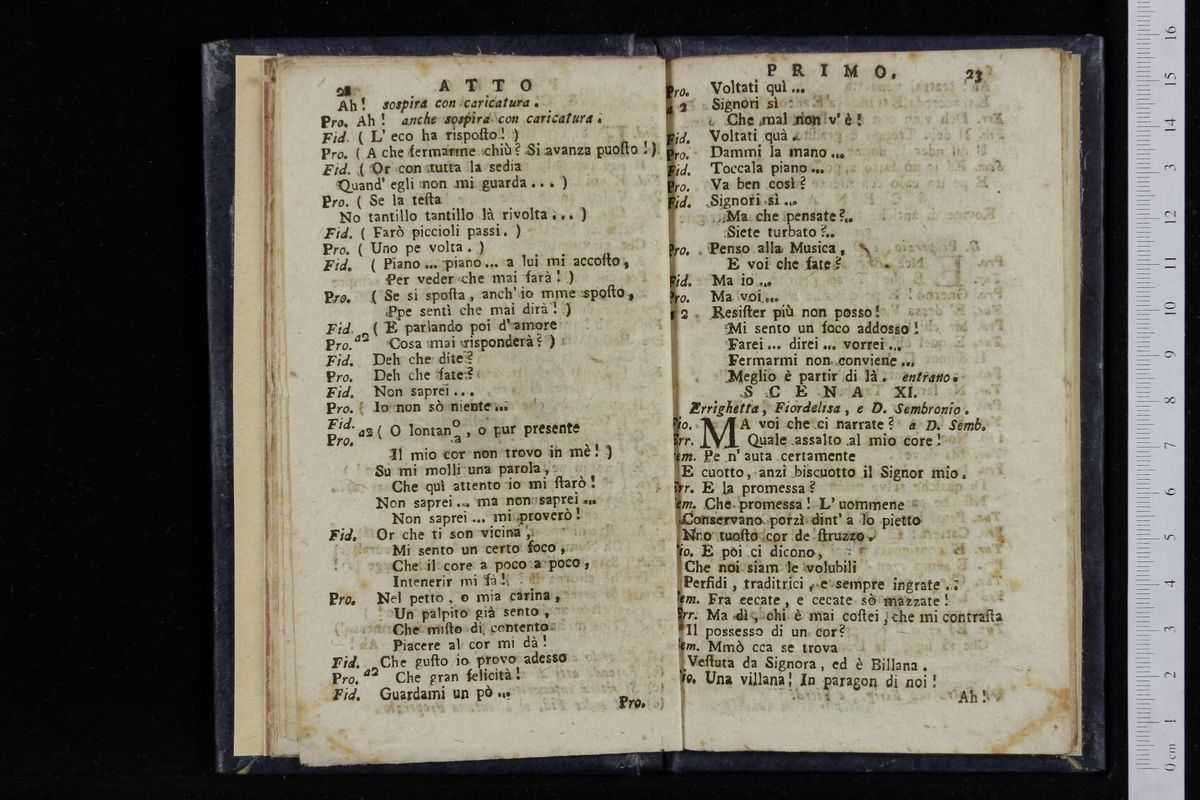 ATTO
Ah! sospira con caricatura.
Pro. Ah! anche sospira con caricatura.
Fid. ( L'eco ha risposto! )
Pro. ( A che fermarme chiù? Si avanza puosto! )
Fid. ( Or con tutta la sedia
Quand' egli non mi guarda... )
Pro. ( Se la testa
No tantillo tantillo là rivolta... )
Fid. ( Farò piccioli passi. )
Pro. ( Uno pe volta. )
Fid. ( Piano... piano... a lui mi accosto,
Per veder che mai sarà! )
Pro. ( Se si sposta, anch' io mme sposto,
Ppe sentì che mai dirà! )
Fid. a2 ( E parlando poi d'amore
Pro. Cosa mai risponderà? )
Fid. Deh che dite?
Pro. Deh che fate?
Fid. Non saprei...
Pro. ( Io non sò niente...
Fid. Pro. a2 ( O lontan o/a, o pur presente
Il mio cor non trovo in mè! )
Su mi molli una parola,
Che quì attento io mi starò!
Non saprei... ma non saprei...
Non saprei... mi proverò!
Fid. Or che ti son vicina,
Mi sento un certo foco,
Che il core a poco a poco,
Intenerir mi fa!
Pro. Nel petto, o mia carina,
Un palpito già sento,
Che misto di contento
Piacere al cor mi dà!
Fid. a2 Che gusto io provo adesso
Pro. Che gran felicità!
Fid. Guardami un pò...
Pro.
PRIMO. 23
Pro. Voltati quì...
a 2 Signori sì
Che mal non v'è!
Fid. Voltati quà.
Pro. Dammi la mano...
Fid. Toccala piano...
Pro. Va ben così?
Fid. Signori sì...
Ma che pensate?..
Siete turbato?..
Pro. Penso alla Musica,
E voi che fate?
Fid. Ma io...
Pro. Ma voi...
a 2 Resister più non posso!
Mi sento un foco addosso!
Farei... direi... vorrei...
Fermarmi non conviene...
Meglio è partir di là. entrano.
SCENA XI.
Errighetta, Fiordelisa, e D. Sembronio.
Fio. MA voi che ci narrate? a D. Semb.
Err. Quale assalto al mio core!
Sem. Pe n'auta certamente
E cuotto, anzi biscuotto il Signor mio.
Err. E la promessa?
Sem. Che promessa! L'uommene
Conservano porzì dint' a lo pietto
Nno tuosto cor de struzzo.
Fio. E poi ci dicono,
Che noi siam le volubili
Perfidi, traditrici, e sempre ingrate..
Sem. Fra cecate, e cecate sò mazzate!
Err. Ma dì, chi è mai costei, che mi contrasta
Il possesso di un cor?
Sem. Mmò cca se trova
Vestuta da Signora, ed è Billana.
Fio. Una villana! In paragon di noi!
Ah!
0 cm 1 2 3 4 5 6 7 8 9 10 11 12 13 14 15 16